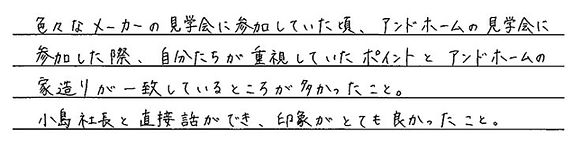 色々なメーカーの見学会に参加していた頃、アンドホームの見学会に
参加した際、自分たちが重視していたポイントとアンドホームの
家造りが一致しているところが多かったこと。
小島社長と直接話ができ、印象がとても良かったこと。